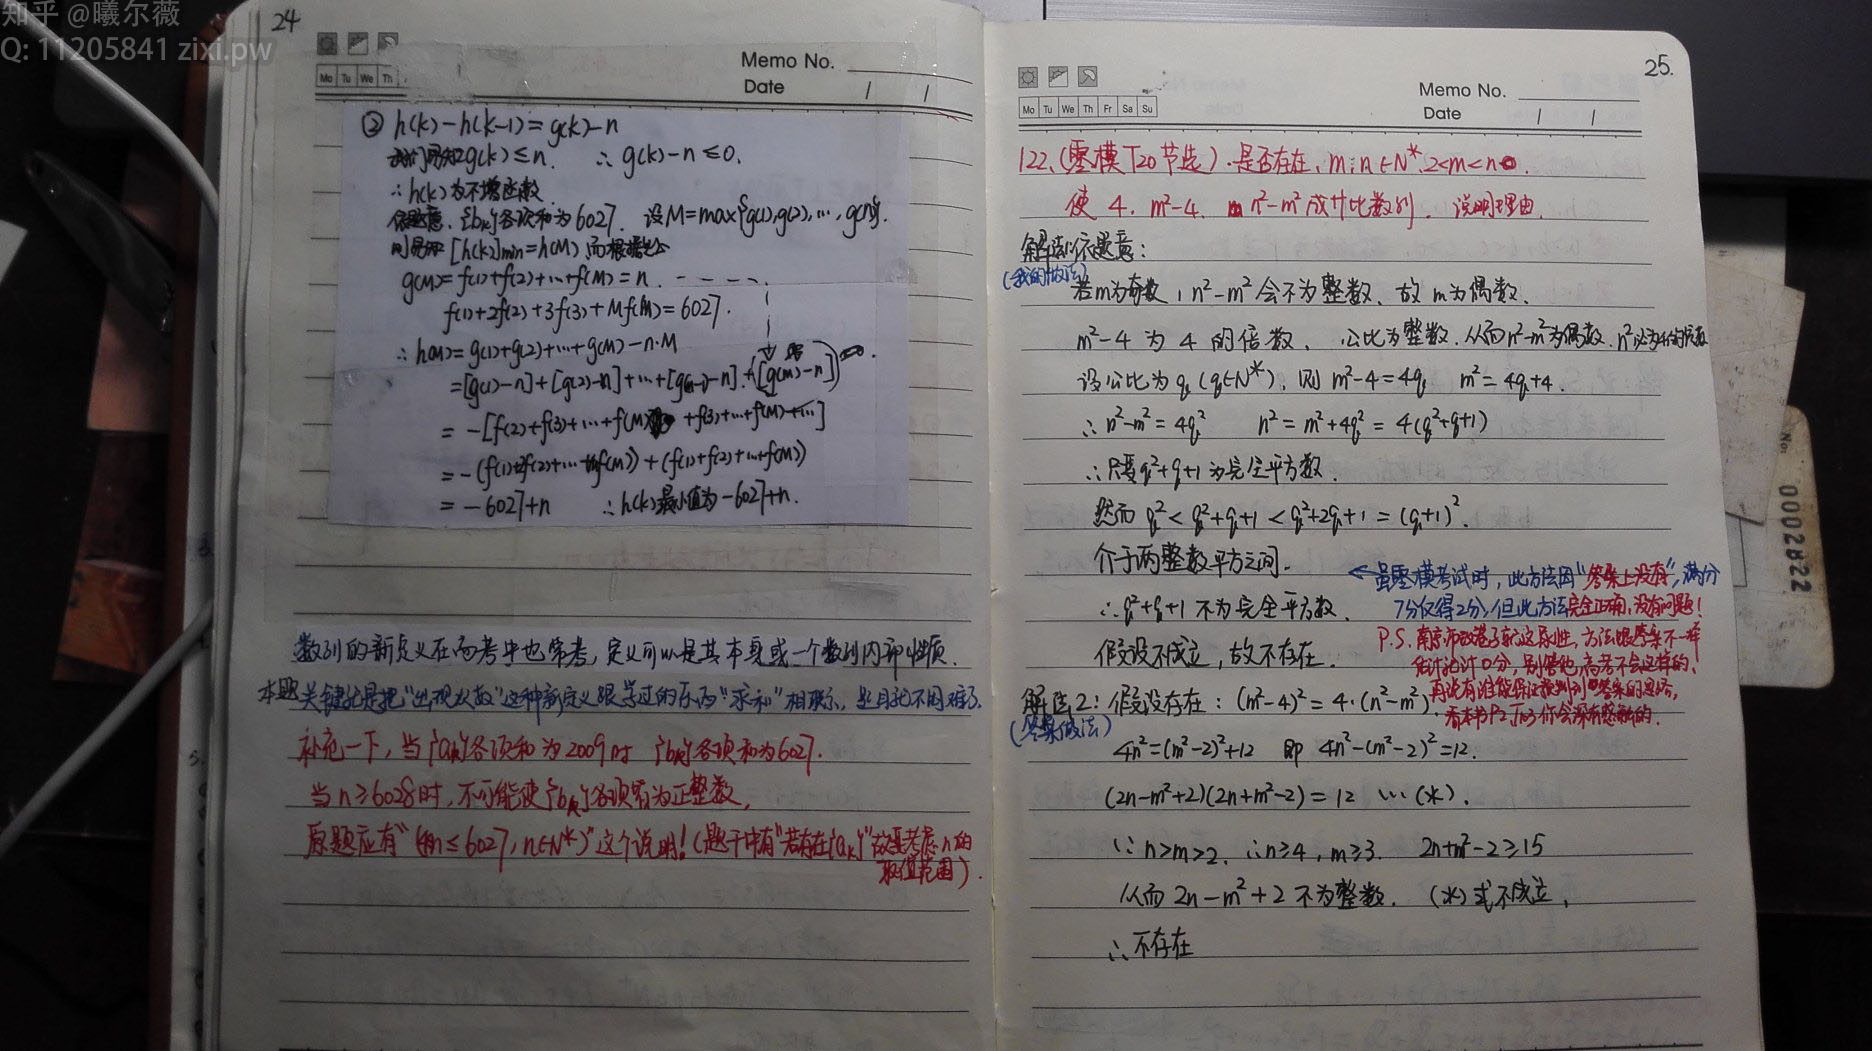 知乎 @曦尔薇
Q: 11205841 zixi.pw
24
Memo No.
Mo Tu We Th
Date / /
② h(k)-h(k-1)=g(k)-n
我们易知g(k)≤n. ∴ g(k)-n≤0.
∴h(k)为不增函数
依题意,{bk}各项和为6027. 设M=max{g(1),g(2),…,g(n)}.
则易知[h(k)]min=h(M) 而根据
g(M)=f(1)+f(2)+…+f(M)=n.
f(1)+2f(2)+3f(3)+Mf(M)=6027.
∴h(M)=g(1)+g(2)+…+g(M)-n·M
=[g(1)-n]+[g(2)-n]+…+[g(M-1)-n]+[g(M)-n]
=-[f(2)+f(3)+…+f(M)+f(3)+…+f(M)+…]
=-(f(1)+2f(2)+…+Mf(M))+(f(1)+f(2)+…+f(M))
=-6027+n ∴h(k)最小值为-6027+n.
数列的新定义在高考中也常考,定义可以是其本身或一个数列内部性质.
本题关键就是把"出现次数"这种新定义跟学过的东西"求和"相联系,坐且就不困难了.
补充一下,当{ak}各项和为2009时{bk}各项和为6027.
当n≥6028时,不可能使{bk}各项皆为正整数,
原题应有"(n≤6027,n∈N*)"这个说明!(题干中有"若存在{ak}"故要考虑n的
取值范围).
25.
Memo No.
Mo Tu We Th Fr Sa Su
Date / /
122.(零模T20节选).是否存在,m;n∈N*,2<m<n.
使4.m²-4.n²-m²成等比数列.说明理由.
解法1:依题意:
(我的做法)
若m为奇数,n²-m²会不为整数、故m为偶数.
m²-4为4的倍数. 公比为整数.从而n²-m²为偶数.n²必为4的倍数
设公比为q(q∈N*),则m²-4=4q m²=4q+4.
∴n²-m²=4q² n²=m²+4q²=4(q²+q+1)
∴只要q²+q+1为完全平方数.
然而q²<q²+q+1<q²+2q+1=(q+1)².
介于两整数平方之间.
∴q²+q+1不为完全平方数.
假设不成立,故不存在.
←虽零模考试时,此方法因"答案上没有",满分
7分仅得2分,但此方法完全正确,没有问题!
P.S.南京市改卷子就这尿性,方法跟答案不一样
估计论计0分,别管他,高考不会这样的、
再说有谁能保证想到答案的思路,
看本书P2 T03你会深有感触的.
解法2:假设存在:(m²-4)²=4·(n²-m²)
(答案做法)
4n²=(m²-2)²+12 即4n²-(m²-2)²=12.
(2n-m²+2)(2n+m²-2)=12 …(*).
∵n>m>2.∴n≥4,m≥3. 2n+m²-2≥15
从而2n-m²+2不为整数. (*)式不成立,
∴不存在
No:
0002822